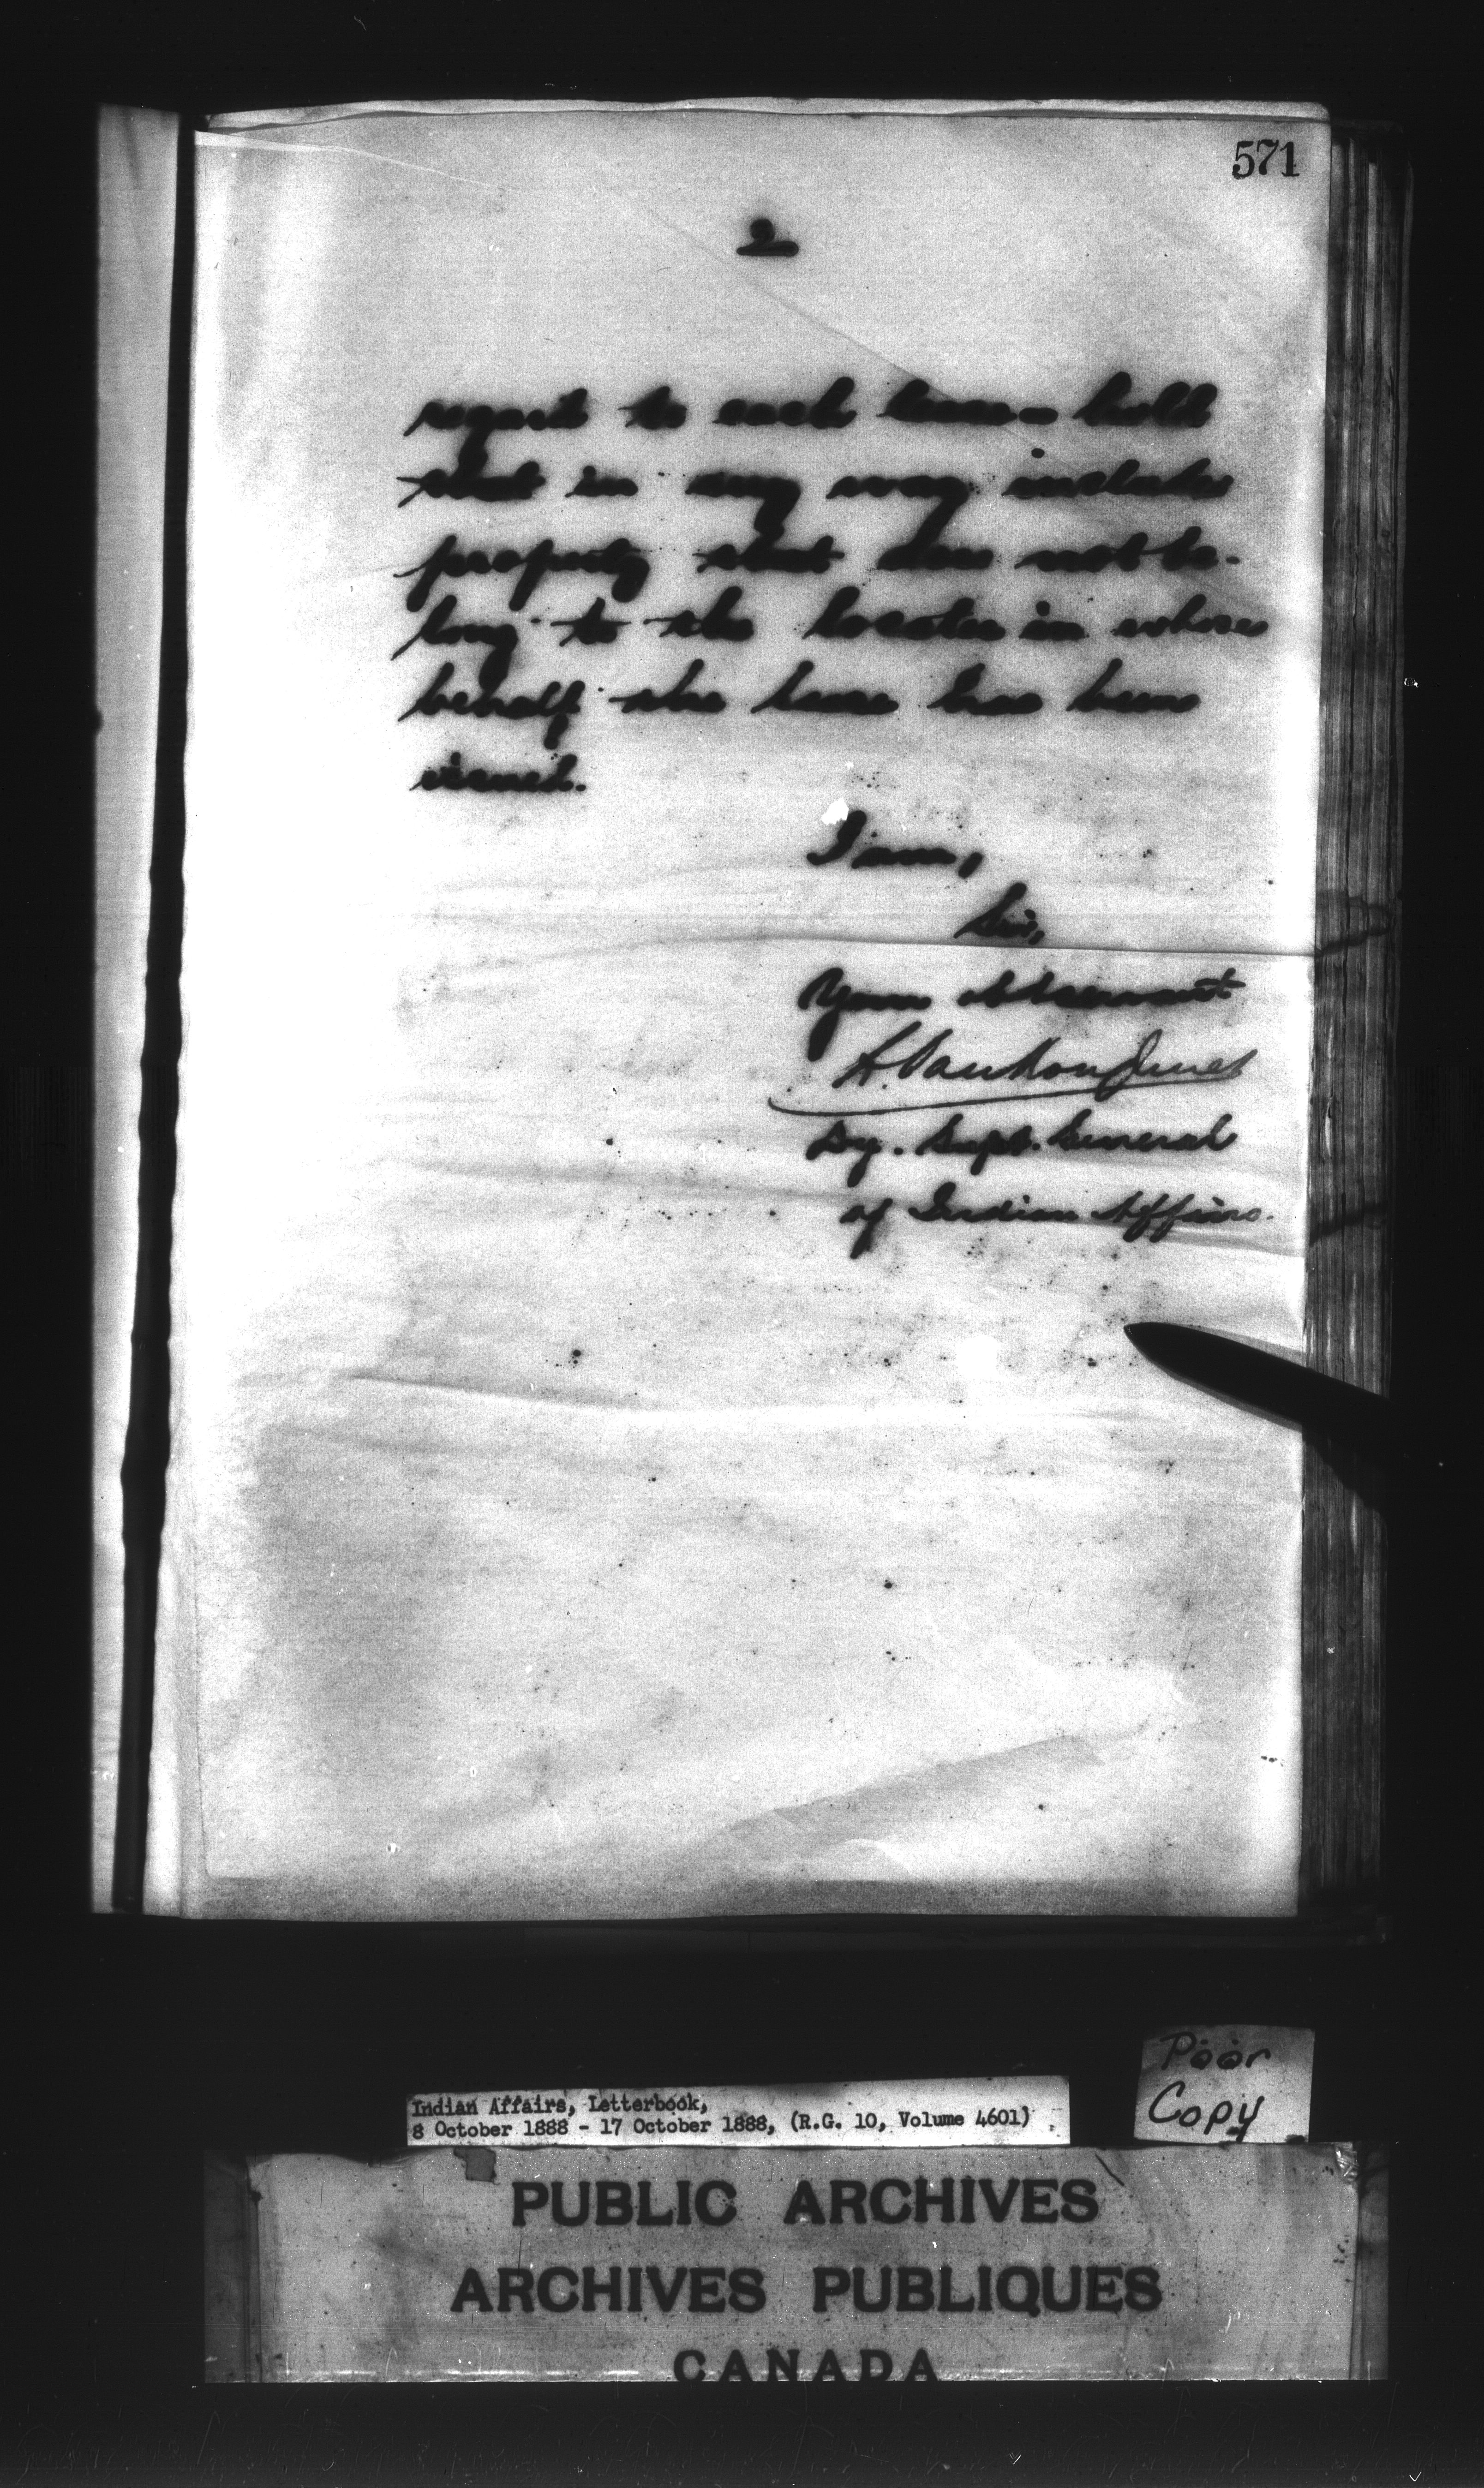 571
2
regard to each lease-hold
that in any way includes
property that does not be-
long to the locatee in whose
behalf the lease has been
issued.
I am,
Sir,
Your obt servant
L. Vankoughnet
Dy. Supt. General
of Indian Affairs.
Poor
Copy
Indian Affairs, Letterbook,
8 October 1888 - 17 October 1888, (R.G. 10, Volume 4601)
PUBLIC ARCHIVES
ARCHIVES PUBLIQUES
CANADA